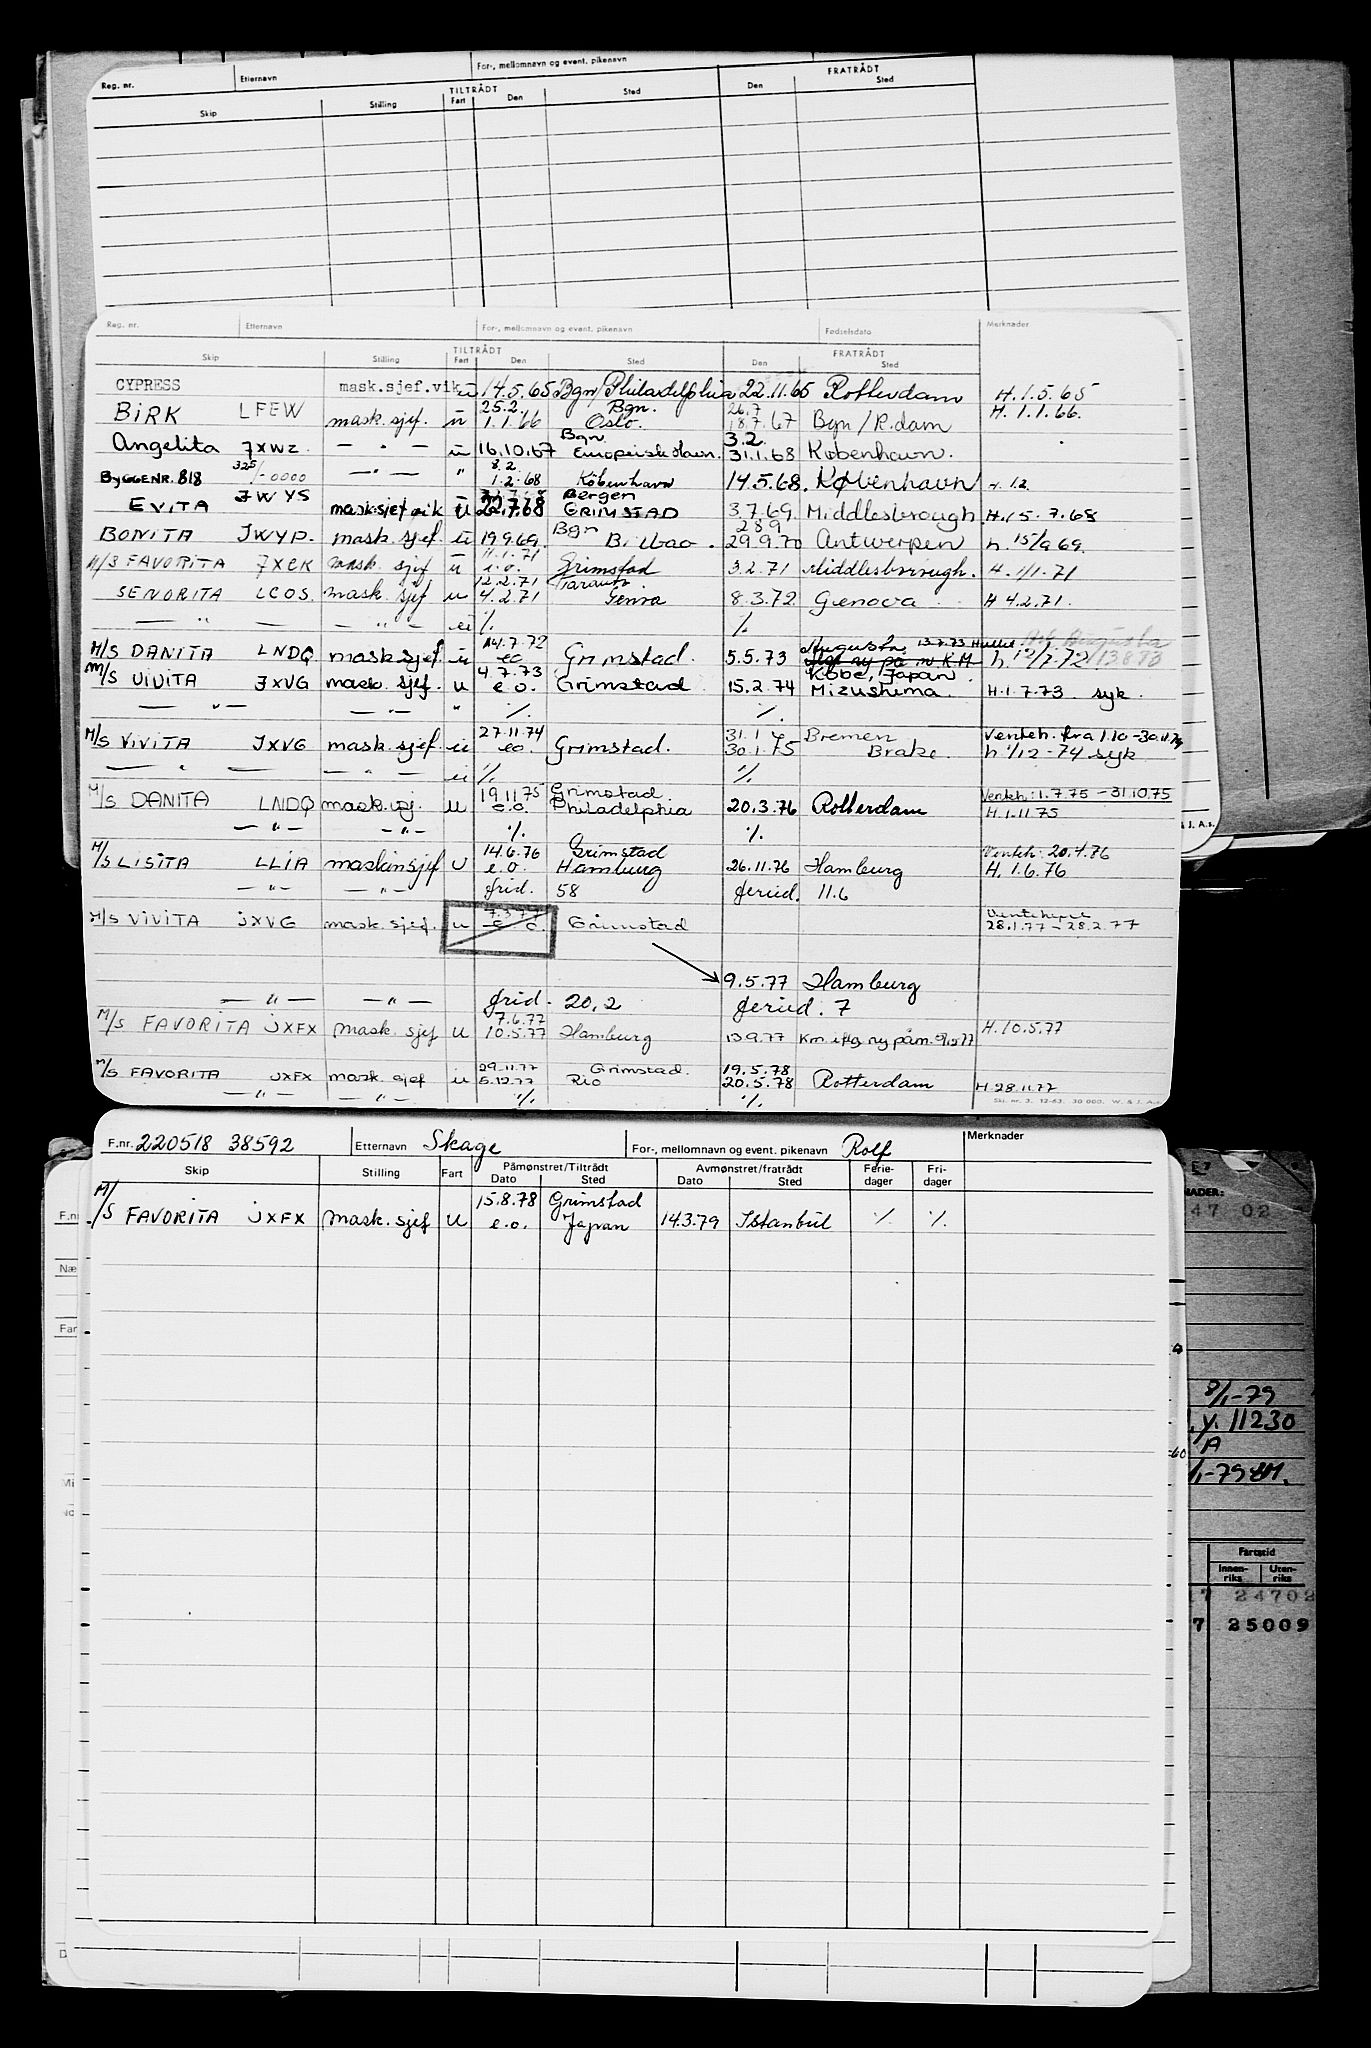 Reg. nr. Etternavn For-, mellomnavn og event. pikenavn
TILTRÅDT FRATRÅDT
Skip Stilling Fart Den Sted Den Sted
Reg. nr. Etternavn For-, mellomnavn og event. pikenavn Fødselsdato Merknader
TILTRÅDT FRATRÅDT
Skip Stilling Fart Den Sted Den Sted
CYPRESS mask.sjef.vik u 14.5.65 Bgn/Philadelphia 22.11.65 Rotterdam H.1.5.65
25.2. Bgn. 26.7
BIRK LFEW mask.sjef. u 1.1.66 Oslo. 18.7.67 Bgn/R.dam H.1.1.66.
Bgn 3.2.
Angelita JXWZ — " — u 16.10.67 Europeisk Havn. 31.1.68 København.
325/-0000 8.2.
BYGGENR. 818 — " — " 1.2.68 København 14.5.68. København H.1.2
JWYS Bergen
EVITA mask.sjef vik u 22.7.68 GRIMSTAD 3.7.69 Middlesbrough H.15.7.68
Bgn 28.9
BONITA JWYP. mask. sjef. u 19.9.69. Bilbao. 29.9.70 Antwerpen h. 15/9 69.
11.1.71
M/S FAVORITA JXCK mask. sjef u e.o. Grimstad 3.2.71 Middlesborough. H. 1/1.71
12.2.71 Taranto
SENORITA LCOS. mask. sjef u 4.2.71 Genva 8.3.72 Genova H 4.2.71.
— " — — " — u % %
14.7.72 Augusta 13.7.73
M/S DANITA LNDQ mask.sjef. u eo Grimstad. 5.5.73 h 12/7.72
4.7.73 Kobe, Japan.
M/S VIVITA JXVG mask. sjef. u e.o. Grimstad 15.2.74 Mizushima. H.1.7.73 syk.
— " — — " — " % %
27.11.74 31.1 Bremen Venteh. fra 1.10-30.11.74
M/S VIVITA JXVG mask. sjef. u eo. Grimstad. 30.1.75 Brake. h 1/12-74 syk
— " — — " — u % %
19.11.75 Grimstad. Venteh: 1.7.75 - 31.10.75
M/S DANITA LNDQ mask. sj. u e.o. Philadelphia 20.3.76 Rotterdam H.1.11.75
— " — — " — % %
14.6.76 Grimstad Venteh: 20.4.76
M/S LISITA LLIA maskinsjef U e.o. Hamburg 26.11.76 Hamburg H. 1.6.76
— " — — " — frid. 58 feried. 11.6
7.3.77
M/S VIVITA JXVG mask. sjef. u e o. Grimstad 28.1.77 - 28.2.77
9.5.77 Hamburg
— " — — " — frid. 20,2 feried. 7
7.6.77
M/S FAVORITA JXFX mask. sjef U 10.5.77 Hamburg 13.9.77 H.10.5.77
29.11.77 Grimstad. 19.5.78
M/S FAVORITA JXFX mask. sjef u 5.12.77 Rio 20.5.78 Rotterdam H 28.11.77
— " — — " — % %
Skj. nr. 3. 12-63. 30 000. W. & J. A.s
& J. A.s.
F.nr. 220518 38592 Etternavn Skage For-, mellomnavn og event. pikenavn Rolf Merknader
Skip Stilling Fart Påmønstret/Tiltrådt Avmønstret/fratrådt Ferie- Fri-
Dato Sted Dato Sted dager dager
15.8.78 Grimstad
M/S FAVORITA JXFX Mask. sjef U e.o. Japan 14.3.79 Istanbul % %
47 02
8/1-79
.y. 11230
A
/1-79
Fartstid
Innen- Uten-
riks riks
17 24702
7 25009